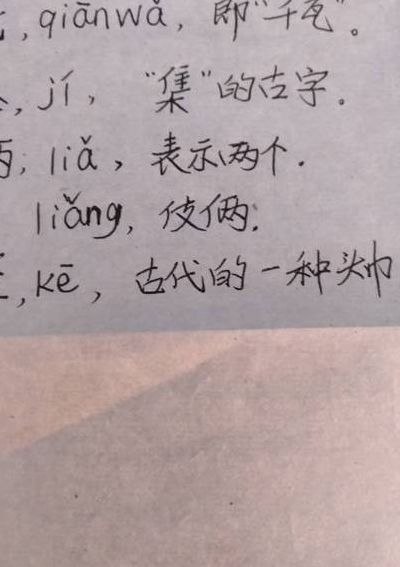 ,qiānwǎ, 即"千瓦"。
, jí, "集"的古字。
; liǎ, 表示两个.
liǎng, 伎俩;
, kē, 古代的一种头巾